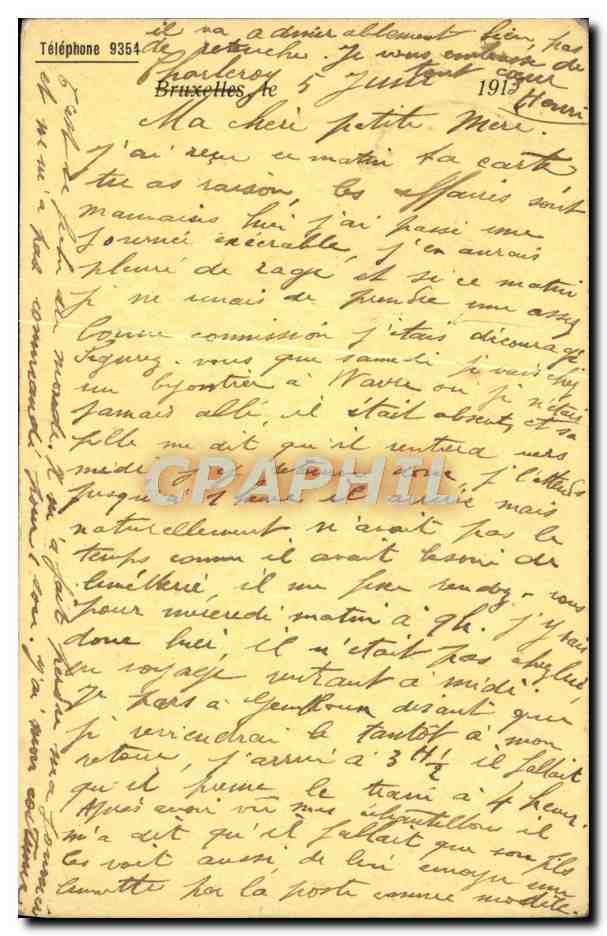 Téléphone 9354
Bruxelles, le
Charleroy 5 Juin 191
Ma chère petite Mère.
J'ai reçu ce matin ta carte
tu as raison, les affaires sont
mauvaises hier j'ai passé une
journée exécrable, j'en aurais
pleuré de rage et si ce matin
je ne venais de prendre une assez
bonne commission j'étais découragé
Figurez-vous que samedi je vais chez
un bijoutier à Wavre où je n'étais
jamais allé, il était absent, et sa
fille me dit qu'il rentrera vers
midi donc je l'attends
jusqu'à 1 heure il arrive mais
naturellement n'avait pas le
temps comme il avait besoin de
lunetterie, il me fixe rendez-vous
pour mercredi matin à 9h. j'y vais
donc hier, il n'était pas chez lui,
en voyage rentrant à midi.
Je pars à Gembloux disant que
je reviendrai le tantôt à mon
retour, j'arrive à 3 H 1/2 il fallait
qu'il prenne le train à 4 heur.
Après avoir vu mes échantillons il
m'a dit qu'il fallait que son fils
les voit aussi, de lui envoyer une
lunette par la poste comme modèle.
du monde. Il m'a fait perdre ma journée
et ne m'a pas commandé pour 1 sou. J'ai mon costume
il va admirablement bien, pas
de retouche. Je vous embrasse de
tout coeur
Henri
CPAPHIL